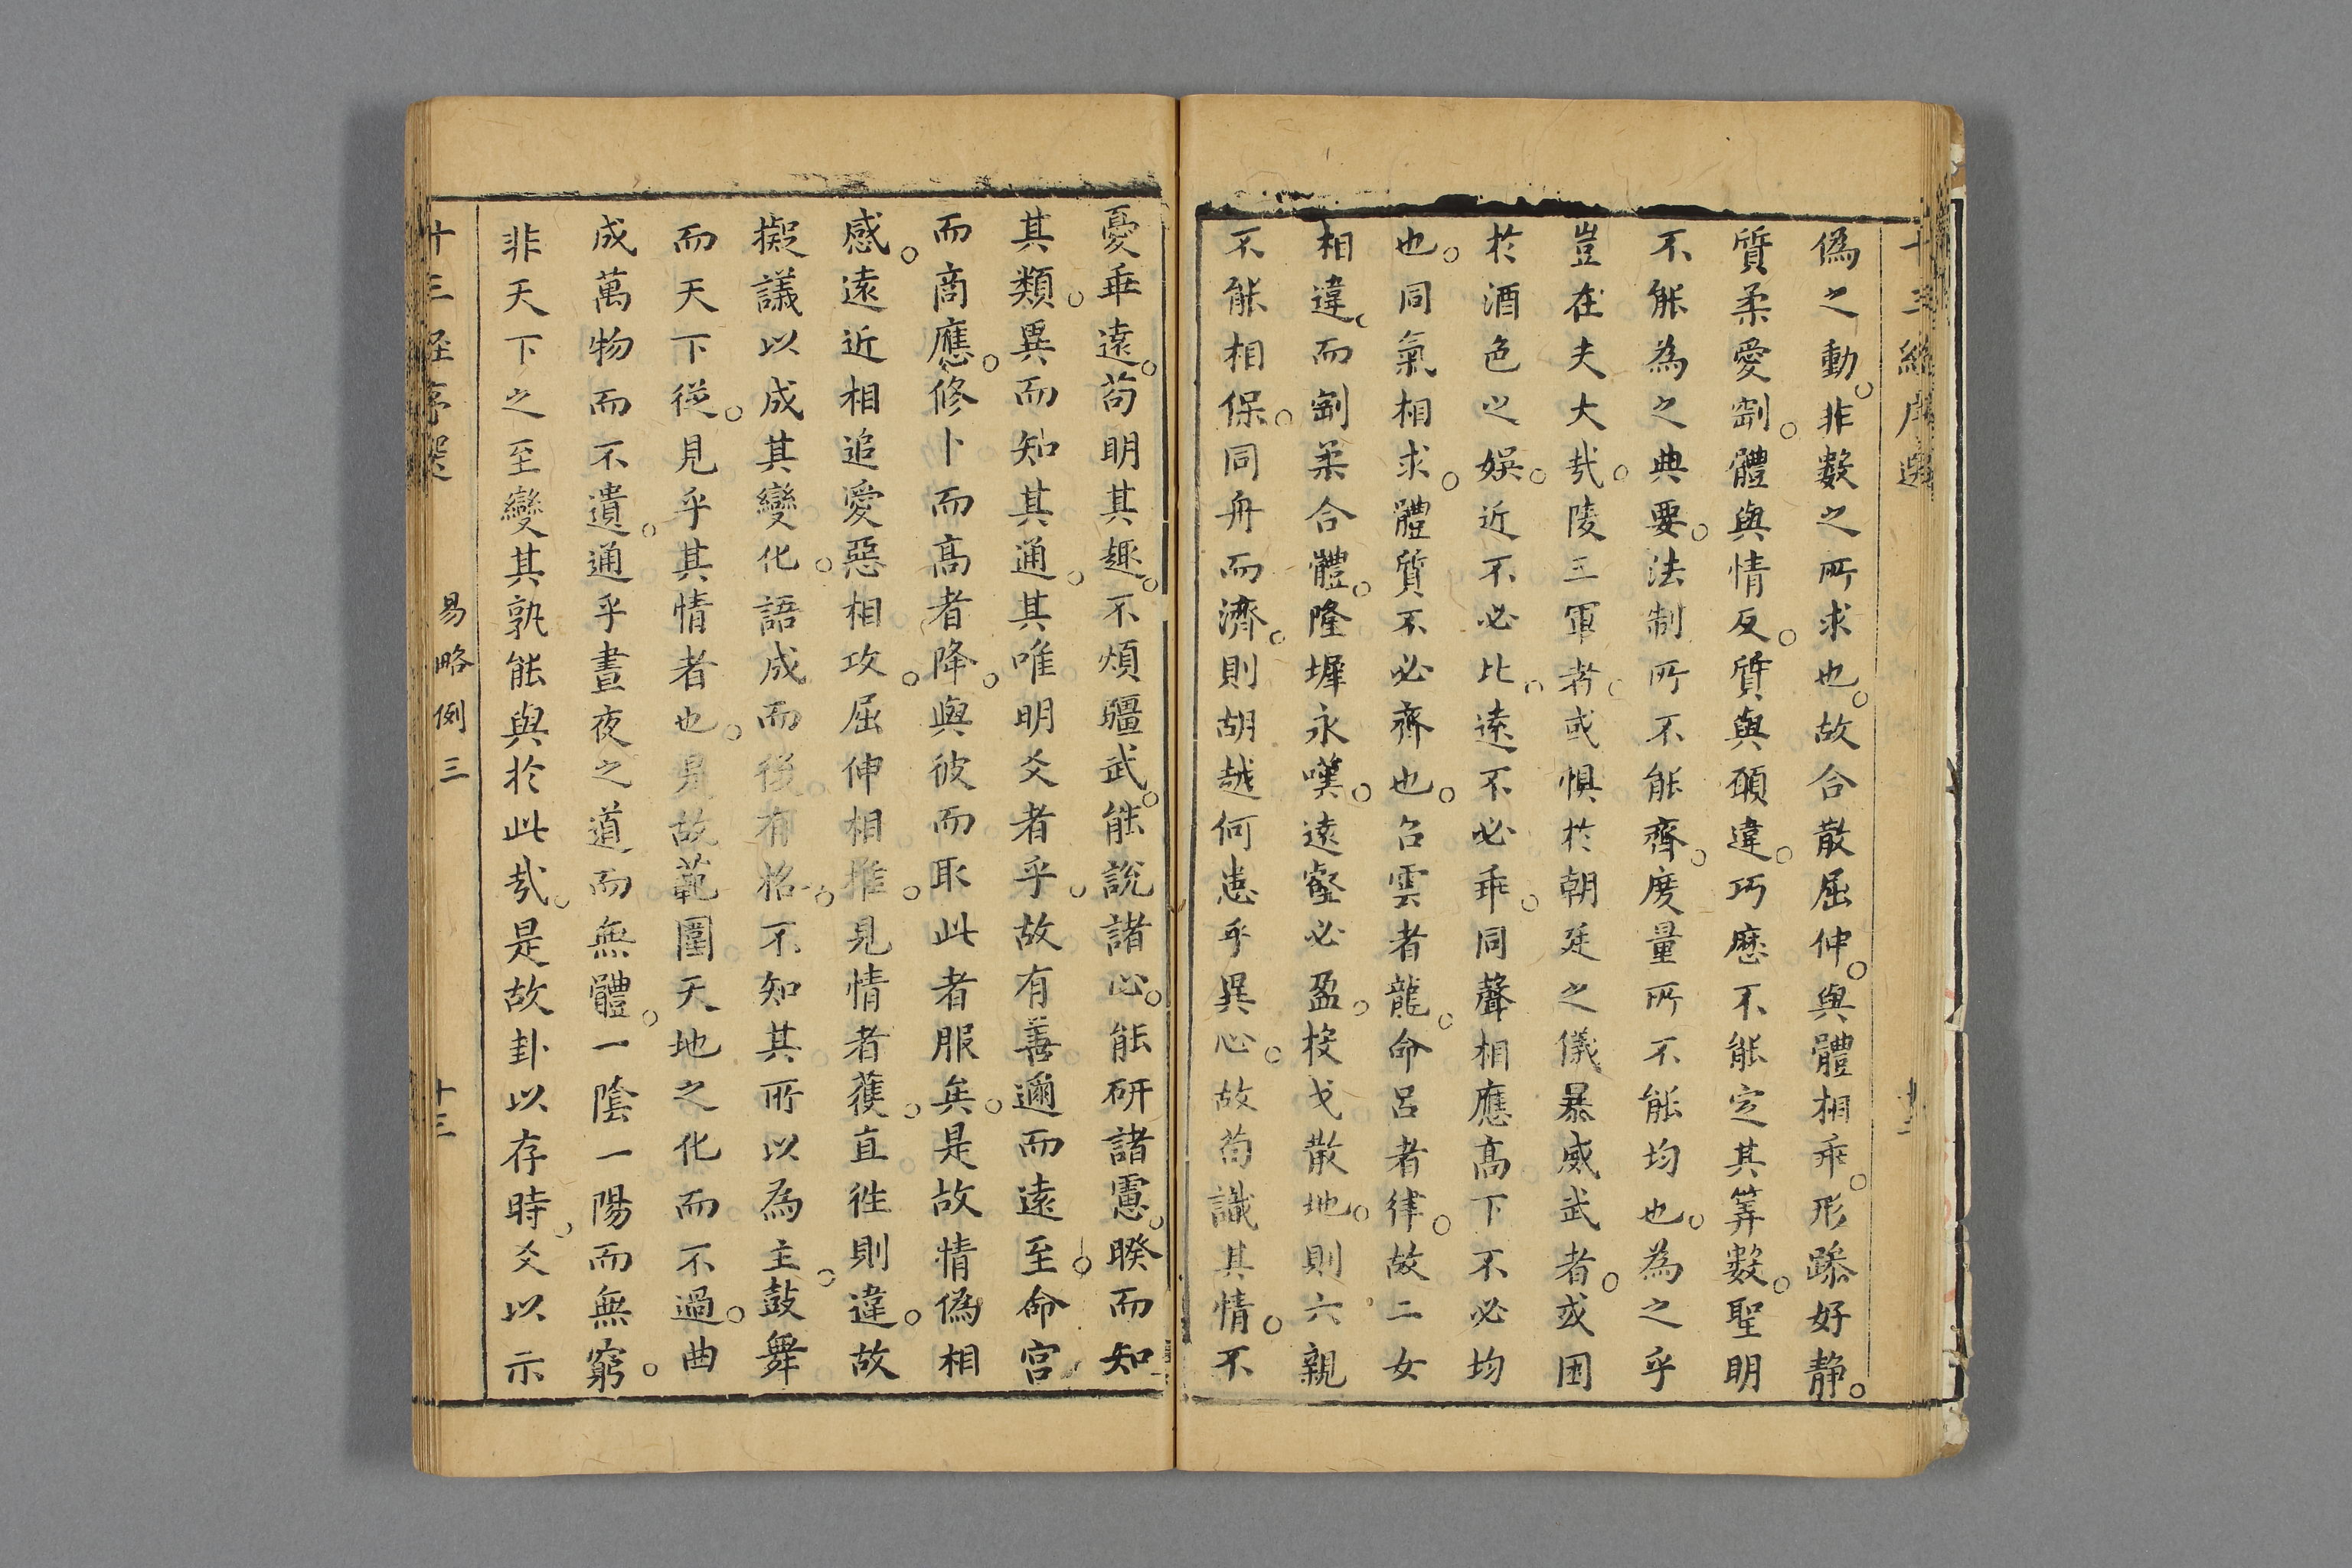 十三經序選
偽之動非數之所求也故合散屈伸與體相乖形躁好靜
質柔愛剛體與情反質與願違巧歷不能定其筭數聖明
不能為之典要法制所不能齊度量所不能均也為之乎
豈在夫大哉陵三軍者或懼於朝廷之儀暴威武者或困
於酒色之娛近不必比遠不必乖同聲相應高下不必均
也同氣相求體質不必齊也召雲者龍命呂者律故二女
相違而剛柔合體隆墀永嘆遠壑必盈投戈散地則六親
不能相保同舟而濟則胡越何患乎異心故苟識其情不
憂乖遠苟明其趣不煩彊武能說諸心能研諸慮睽而知
其類異而知其通其唯明爻者乎故有善邇而遠至命宮
而商應修卜而高者降與彼而取此者服矣是故情偽相
感遠近相追愛惡相攻屈伸相推見情者獲直往則違故
擬議以成其變化語成而後有格不知其所以為主鼓舞
而天下從見乎其情者也是故範圍天地之化而不過曲
成萬物而不遺通乎晝夜之道而無體一陰一陽而無窮
非天下之至變其孰能與於此哉是故卦以存時爻以示
十三經序選 易略例三 十三